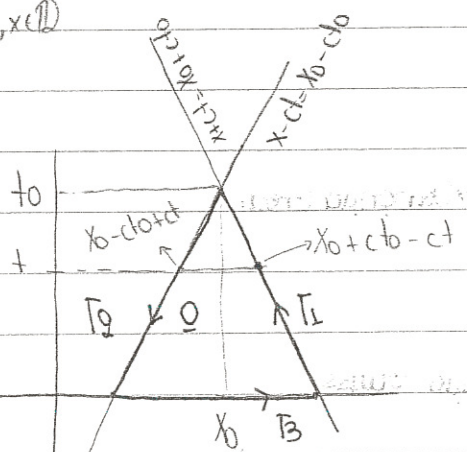 ,x∈ℝ
x+ct=x0+ct0
x-ct=x0-ct0
t0
x0-ct0+ct
x0+ct0-ct
t
Γ2
Ω
Γ1
x0
Γ3